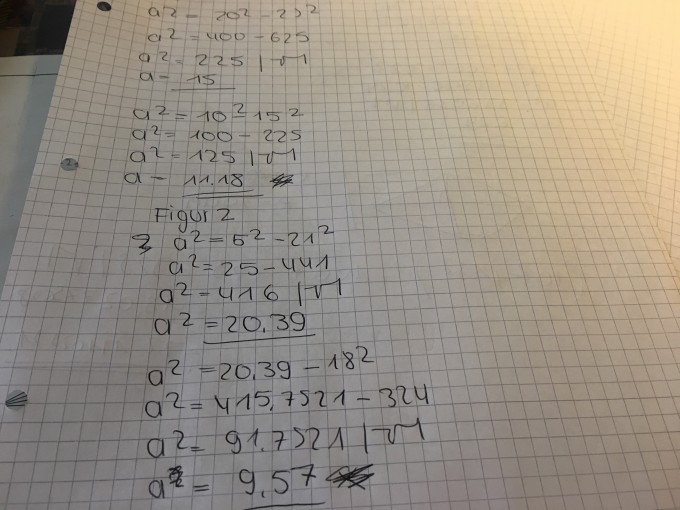 a² = 20² - 25²
a² = 400 - 625
a² = 225 |√
a = 15
a² = 10² - 15²
a² = 100 - 225
a² = 125 |√
a = 11.18
Figur 2
a² = 5² - 21²
a² = 25 - 441
a² = 416 |√
a² = 20.39
a² = 20.39 - 18²
a² = 415.7521 - 324
a² = 91.7521 |√
a = 9.57